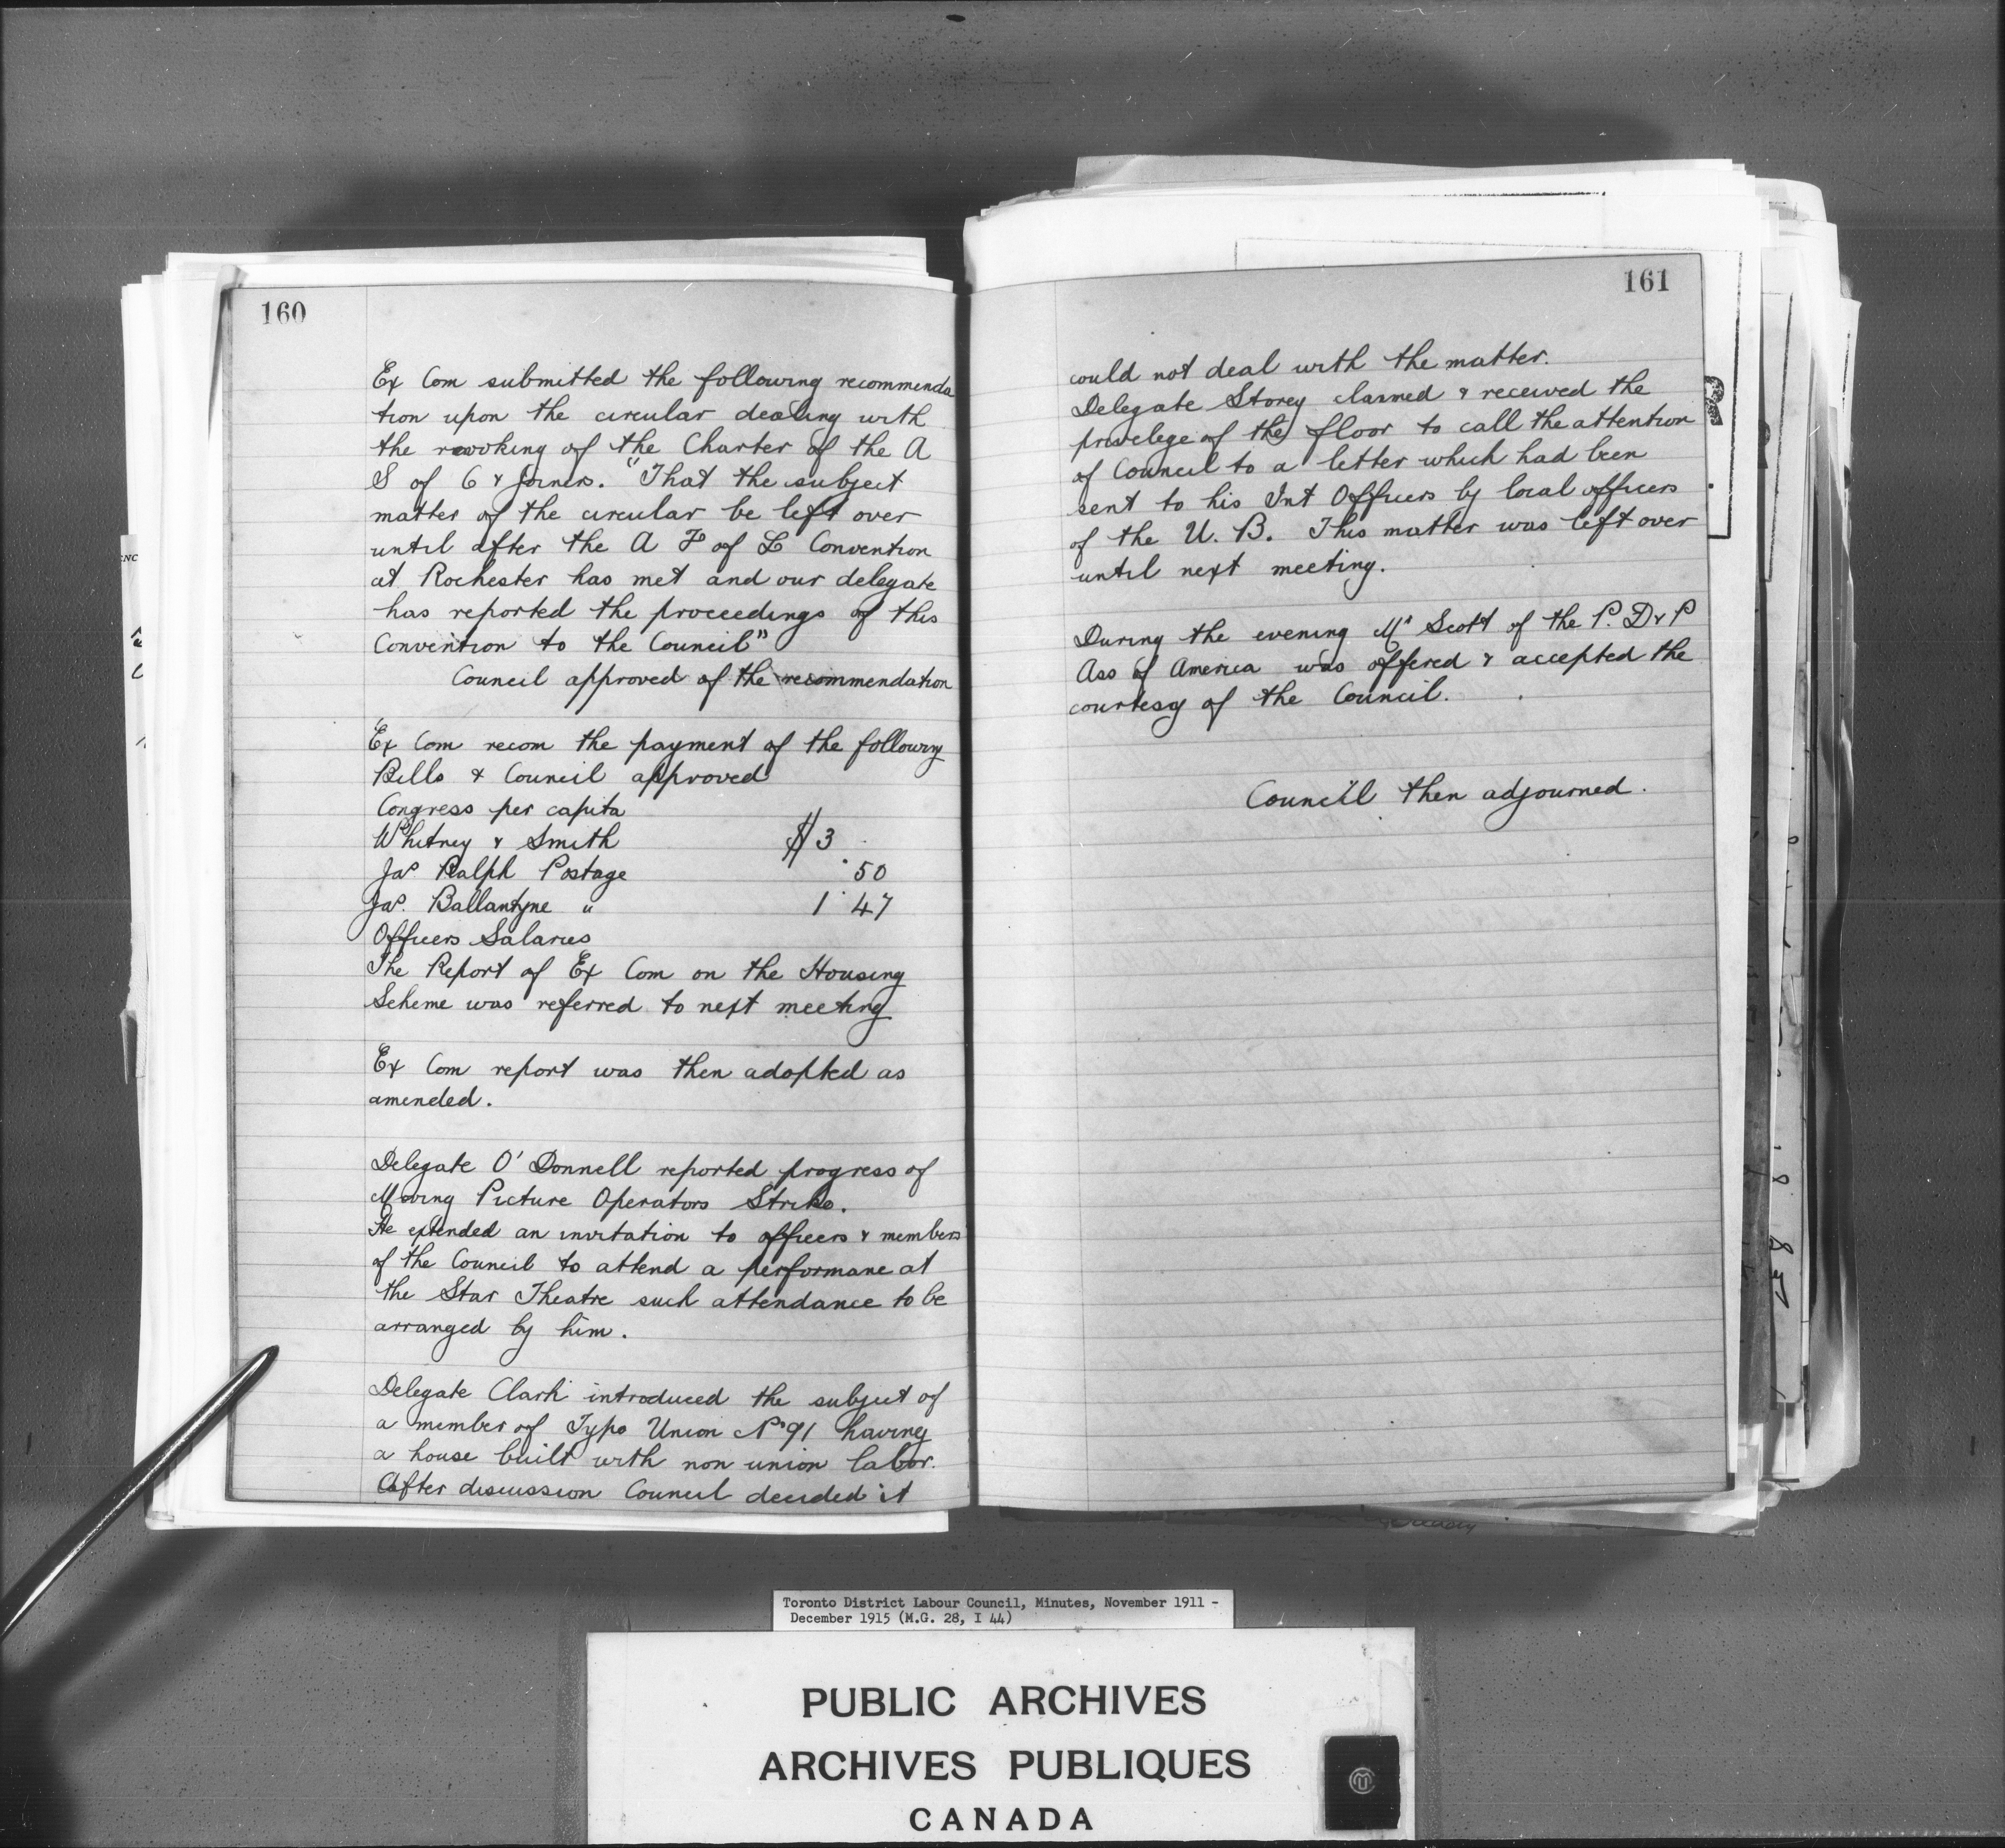 160
Ex Com submitted the following recommenda
tion upon the circular dealing with
the revoking of the Charter of the A
S of C & Joiners. "That the subject
matter of the circular be left over
until after the A F of L Convention
at Rochester has met and our delegate
has reported the proceedings of this
Convention to the Council"
Council approved of the recommendation
Ex Com recom the payment of the following
Bills & Council approved
Congress per capita
Whitney & Smith $3
Jas Ralph Postage .50
Jas. Ballantyne " 1.47
Officers Salaries
The Report of Ex Com on the Housing
Scheme was referred to next meeting
Ex Com report was then adopted as
amended.
Delegate O'Donnell reported progress of
Moving Picture Operators Strike.
He extended an invitation to officers & members
of the Council to attend a performane at
the Star Theatre such attendance to be
arranged by him.
Delegate Clark introduced the subject of
a member of Typo Union No 91 having
a house built with non union labor.
After discussion Council decided it
161
could not deal with the matter.
Delegate Storey claimed & received the
privelege of the floor to call the attention
of Council to a letter which had been
sent to his Int Officers by local officers
of the U. B. This matter was left over
until next meeting.
During the evening Mr Scott of the P. D & P
Ass of America was offered & accepted the
courtesy of the Council.
Council then adjourned.
Toronto District Labour Council, Minutes, November 1911 -
December 1915 (M.G. 28, I 44)
PUBLIC ARCHIVES
ARCHIVES PUBLIQUES
CANADA